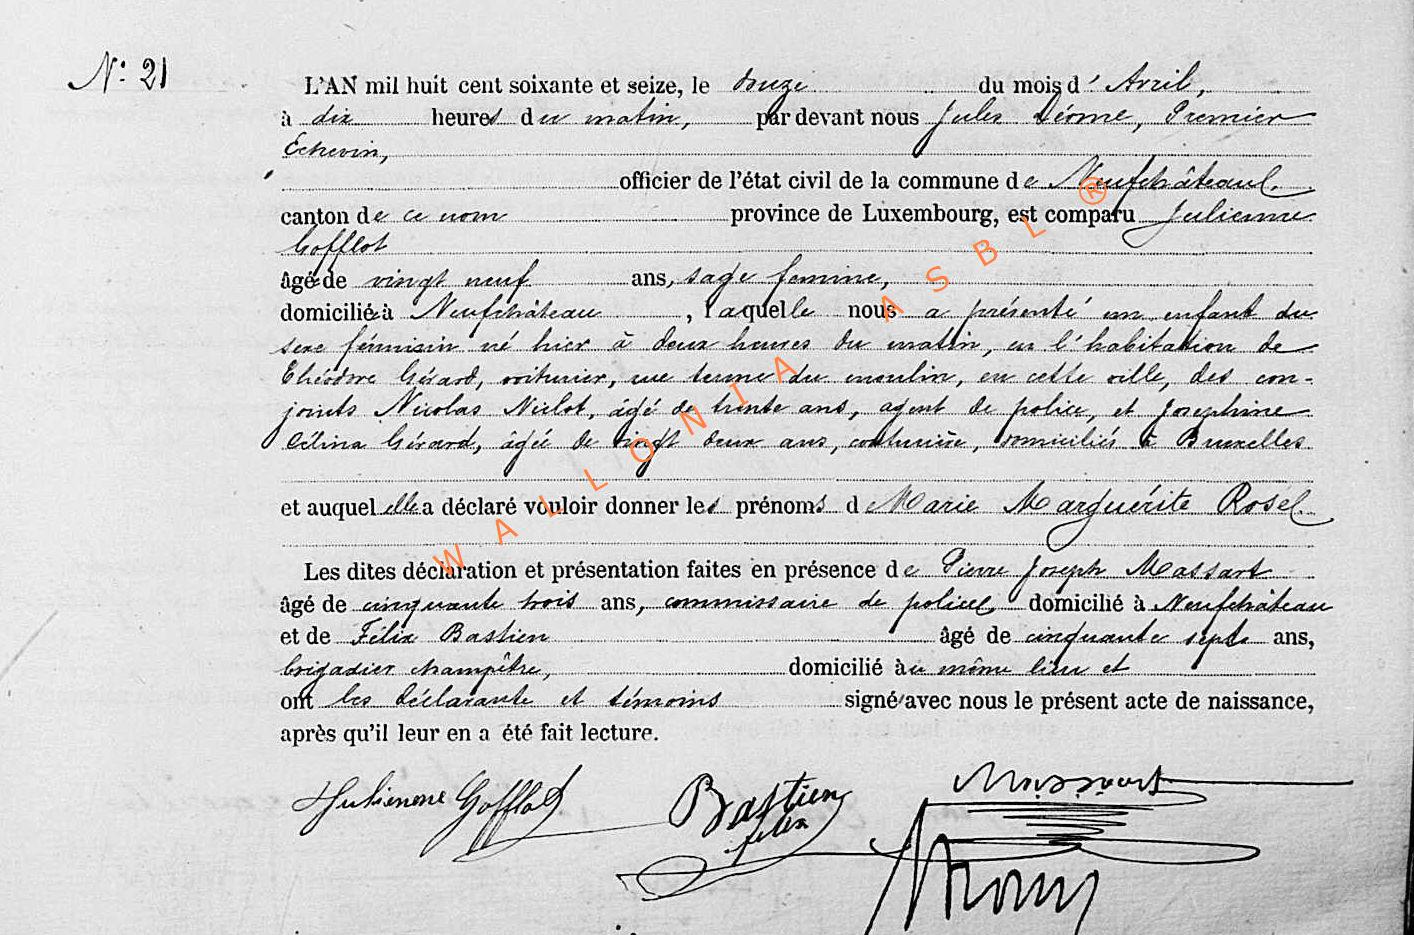 N° 21
L'AN mil huit cent soixante et seize, le douze du mois d'Avril,
à dix heures du matin, par devant nous Jules Dérome, Premier
Echevin,
officier de l'état civil de la commune de Neufchâteau
canton de ce nom province de Luxembourg, est comparu Julienne
Gofflot
âgée de vingt neuf ans, sage femme,
domiciliée à Neufchâteau, laquelle nous a présenté un enfant du
sexe féminin né hier à deux heures du matin, en l'habitation de
Théodore Gérard, voiturier, rue terme du moulin, en cette ville, des con-
joints Nicolas Niclot, âgé de trente ans, agent de police, et Josephine
Célina Gérard, âgée de vingt deux ans, couturière, domiciliés à Bruxelles
et auquel elle a déclaré vouloir donner les prénoms de Marie Marguérite Rose
Les dites déclaration et présentation faites en présence de Pierre Joseph Massart
âgé de cinquante trois ans, commissaire de police domicilié à Neufchâteau
et de Félix Bastien âgé de cinquante sept ans,
brigadier champêtre, domicilié au même lieu et
ont les déclarante et témoins signé avec nous le présent acte de naissance,
après qu'il leur en a été fait lecture.
Julienne Gofflot Bastien Massart
felix
WALLONIA ASBL ®